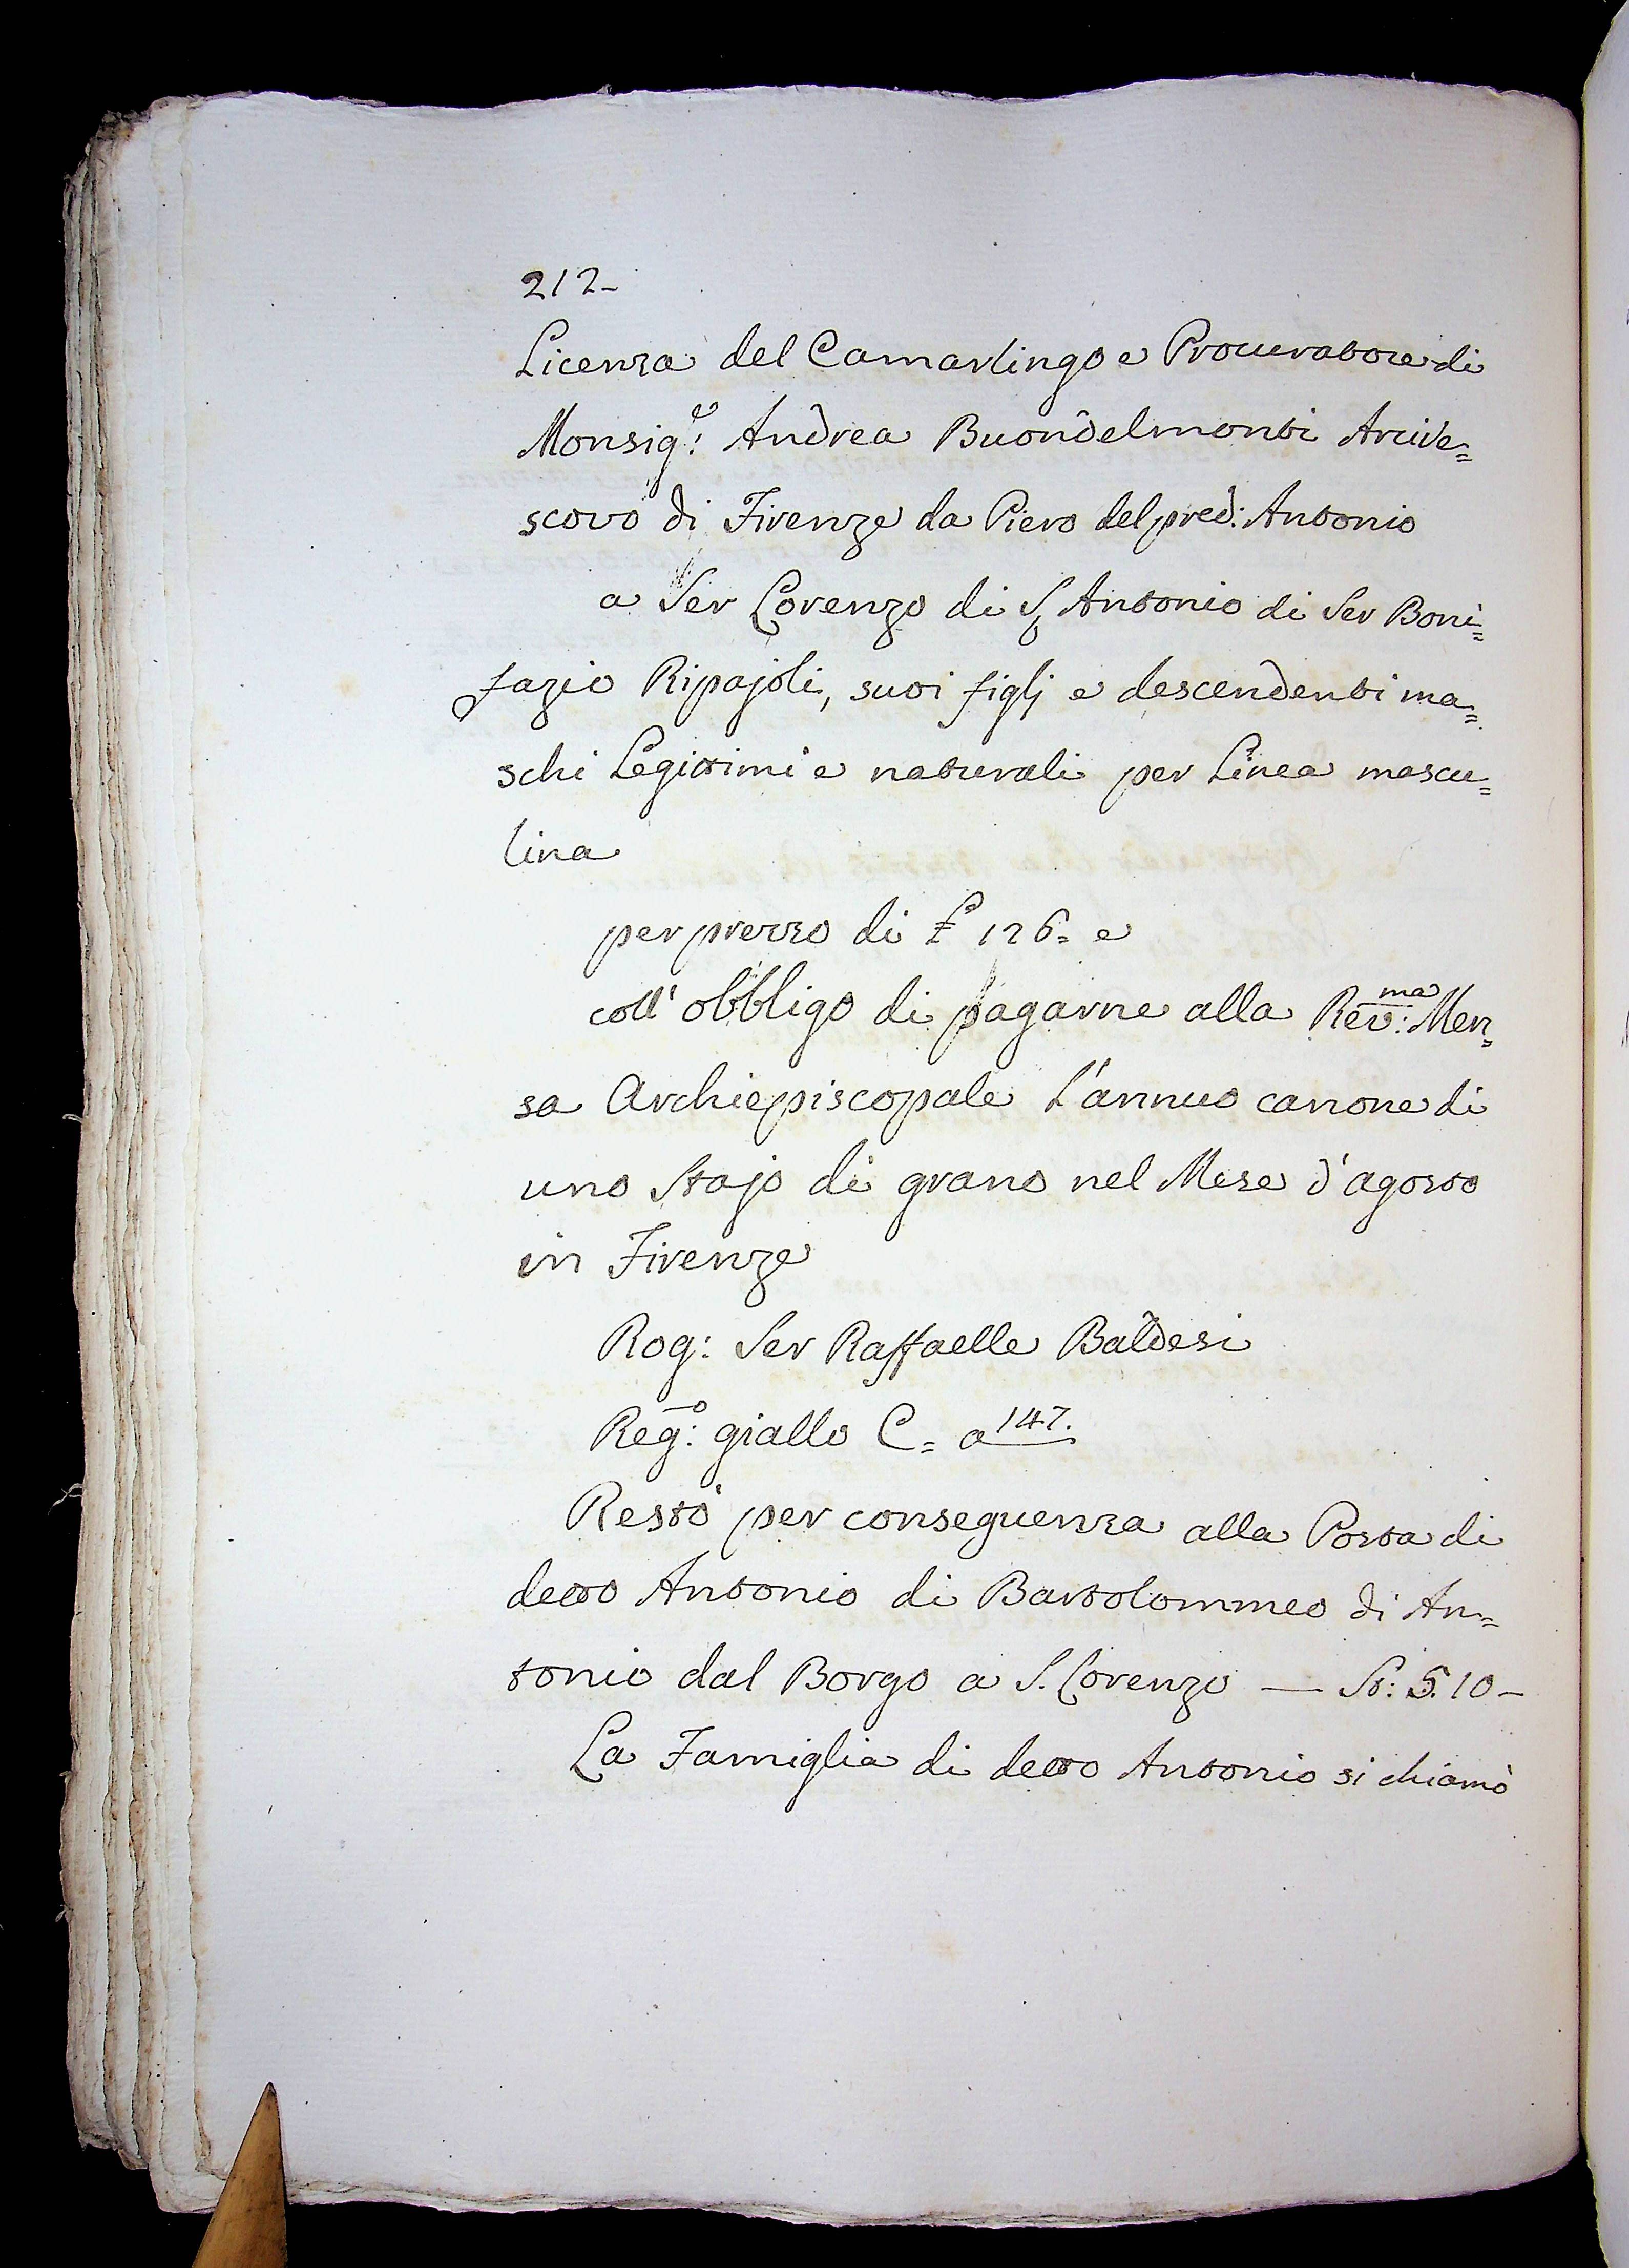 212-
Licenza del Camarlingo e Procuratore di
Monsig.e Andrea Buondelmonti Arcive=
scovo di Firenze da Piero del pred: Antonio
a Ser Lorenzo di S. Antonio di Ser Boni=
fazio Ripajoli, suoi figlj e descendenti ma=
schi Legittimi e naturali per Linea mascu=
lina
per prezzo di £ 126= e
coll'obbligo di pagarne alla Rev:ma Men=
sa Archiepiscopale l'annuo canone di
uno Stajo di grano nel Mese d'agosto
in Firenze
Rog: Ser Raffaelle Baldesi
Reg:o giallo C= a 147.
Restò per conseguenza alla Posta di
detto Antonio di Bartolommeo di An=
tonio dal Borgo a S. Lorenzo — St: 5.10-
La Famiglia di detto Antonio si chiamò